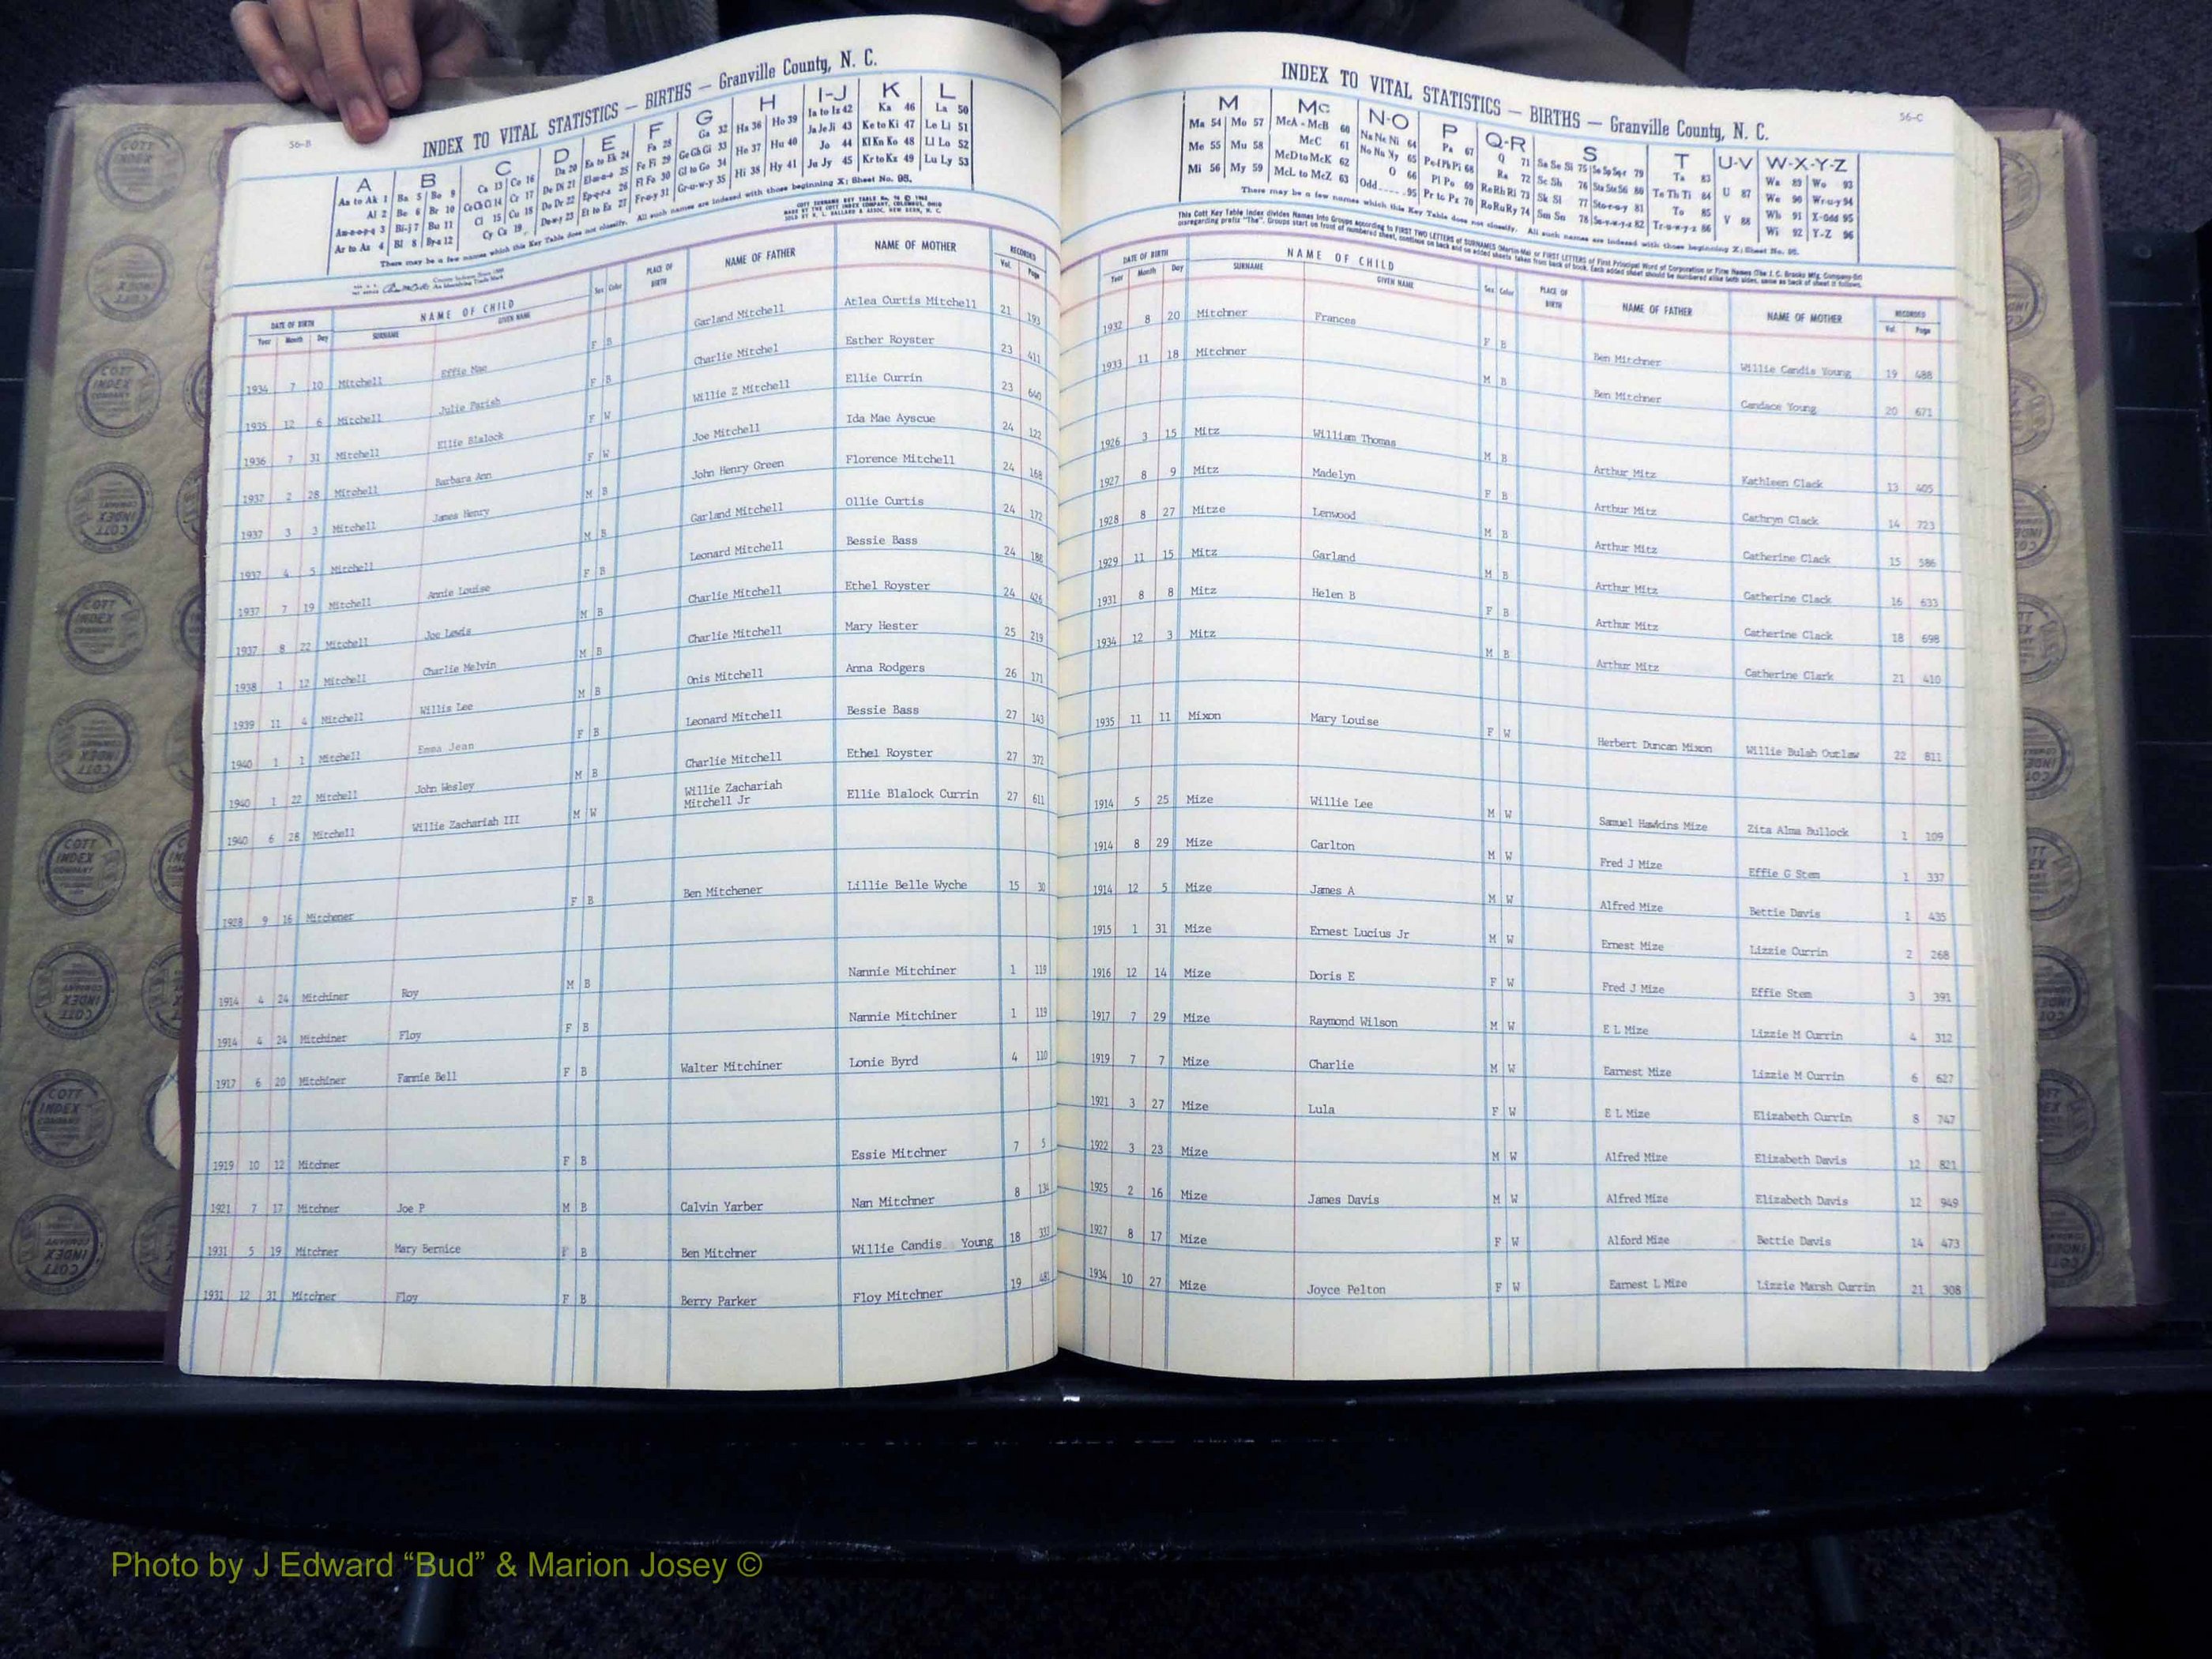 56-B
INDEX TO VITAL STATISTICS — BIRTHS — Granville County, N. C.
A B C D E F G H I-J K L
Aa to Ak 1 Ba 5 Bo 9 Ca 13 Co 16 Da 20 Ea to Ek 24 Fa 28 Ga 32 Ha 36 Ho 39 Ia to Iz 42 Ka 46 La 50
Al 2 Be 6 Br 10 Ce Ch Ci 14 Cr 17 De Di 21 El-m-n-o 25 Fe Fi 29 Ge Gh Gi 33 He 37 Hu 40 Ja Je Ji 43 Ke to Ki 47 Le Li 51
Am-n-o-p-q 3 Bi-j 7 Bu 11 Cl 15 Cu 18 Do Dr 22 Ep-q-r-s 26 Fl Fo 30 Gl to Go 34 Hi 38 Hy 41 Jo 44 Kl Kn Ko 48 Ll Lo 52
Ar to Az 4 Bl 8 By-z 12 Cy Cz 19 Du-w-y 23 Et to Ez 27 Fr-u-y 31 Gr-u-w-y 35 Ju Jy 45 Kr to Kz 49 Lu Ly 53
There may be a few names which this Key Table does not classify. All such names are indexed with those beginning X; Sheet No. 95.
DATE OF BIRTH NAME OF CHILD Sex Color PLACE OF BIRTH NAME OF FATHER NAME OF MOTHER RECORDED
Year Month Day SURNAME GIVEN NAME Vol. Page
1934 7 10 Mitchell Effie Mae F B Garland Mitchell Atlea Curtis Mitchell 21 193
1935 12 6 Mitchell Julie Parish F B Charlie Mitchel Esther Royster 23 411
1936 7 31 Mitchell Ellie Blalock F W Willie Z Mitchell Ellie Currin 23 640
1937 2 28 Mitchell Barbara Ann F W Joe Mitchell Ida Mae Ayscue 24 122
1937 3 3 Mitchell James Henry M B John Henry Green Florence Mitchell 24 168
1937 4 5 Mitchell M B Garland Mitchell Ollie Curtis 24 172
1937 7 19 Mitchell Annie Louise F B Leonard Mitchell Bessie Bass 24 188
1937 8 22 Mitchell Joe Lewis M B Charlie Mitchell Ethel Royster 24 426
1938 1 12 Mitchell Charlie Melvin M B Charlie Mitchell Mary Hester 25 219
1939 11 4 Mitchell Willis Lee M B Onis Mitchell Anna Rodgers 26 171
1940 1 1 Mitchell Emma Jean F B Leonard Mitchell Bessie Bass 27 143
1940 1 22 Mitchell John Wesley M B Charlie Mitchell Ethel Royster 27 372
1940 6 28 Mitchell Willie Zachariah III M W Willie Zachariah Mitchell Jr Ellie Blalock Currin 27 611
1928 9 16 Mitchener F B Ben Mitchener Lillie Belle Wyche 15 30
1914 4 24 Mitchiner Roy M B Nannie Mitchiner 1 119
1914 4 24 Mitchiner Floy F B Nannie Mitchiner 1 119
1917 6 20 Mitchiner Fannie Bell F B Walter Mitchiner Lonie Byrd 4 110
1919 10 12 Mitchner F B Essie Mitchner 7 5
1921 7 17 Mitchner Joe P M B Calvin Yarber Nan Mitchner 8 134
1931 5 19 Mitchner Mary Bernice F B Ben Mitchner Willie Candis Young 18 333
1931 12 31 Mitchner Floy F B Berry Parker Floy Mitchner 19 481
56-C
INDEX TO VITAL STATISTICS — BIRTHS — Granville County, N. C.
M Mc N-O P Q-R S T U-V W-X-Y-Z
Ma 54 Mo 57 McA - McB 60 Na Ne Ni 64 Pa 67 Q 71 Sa Se Si 75 So Sp Sq-r 79 Ta 83 U 87 Wa 89 Wo 93
Me 55 Mu 58 McC 61 No Nu Ny 65 Pe-f Ph Pi 68 Ra 72 Sc Sh 76 Sta Ste Sti 80 Te Th Ti 84 V 88 We 90 Wr-u-y 94
Mi 56 My 59 McD to McK 62 O 66 Pl Po 69 Re Rh Ri 73 Sk Sl 77 Sto-r-u-y 81 To 85 Wh 91 X-Odd 95
McL to McZ 63 Odd.....95 Pr to Pz 70 Ro Ru Ry 74 Sm Sn 78 Su-v-w-y-z 82 Tr-u-w-y-z 86 Wi 92 Y-Z 96
There may be a few names which this Key Table does not classify. All such names are indexed with those beginning X; Sheet No. 95.
DATE OF BIRTH NAME OF CHILD Sex Color PLACE OF BIRTH NAME OF FATHER NAME OF MOTHER RECORDED
Year Month Day SURNAME GIVEN NAME Vol. Page
1932 8 20 Mitchner Frances F B Ben Mitchner Willie Candis Young 19 488
1933 11 18 Mitchner M B Ben Mitchner Candace Young 20 671
1926 3 15 Mitz William Thomas M B Arthur Mitz Kathleen Clack 13 405
1927 8 9 Mitz Madelyn F B Arthur Mitz Cathryn Clack 14 723
1928 8 27 Mitze Lenwood M B Arthur Mitz Catherine Clack 15 586
1929 11 15 Mitz Garland M B Arthur Mitz Catherine Clack 16 633
1931 8 8 Mitz Helen B F B Arthur Mitz Catherine Clack 18 698
1934 12 3 Mitz M B Arthur Mitz Catherine Clark 21 410
1935 11 11 Mixon Mary Louise F W Herbert Duncan Mixon Willie Bulah Outlaw 22 811
1914 5 25 Mize Willie Lee M W Samuel Hawkins Mize Zita Alma Bullock 1 109
1914 8 29 Mize Carlton M W Fred J Mize Effie G Stem 1 337
1914 12 5 Mize James A M W Alfred Mize Bettie Davis 1 435
1915 1 31 Mize Ernest Lucius Jr M W Ernest Mize Lizzie Currin 2 268
1916 12 14 Mize Doris E F W Fred J Mize Effie Stem 3 391
1917 7 29 Mize Raymond Wilson M W E L Mize Lizzie M Currin 4 312
1919 7 7 Mize Charlie M W Earnest Mize Lizzie M Currin 6 627
1921 3 27 Mize Lula F W E L Mize Elizabeth Currin 8 747
1922 3 23 Mize M W Alfred Mize Elizabeth Davis 12 821
1925 2 16 Mize James Davis M W Alfred Mize Elizabeth Davis 12 949
1927 8 17 Mize F W Alford Mize Bettie Davis 14 473
1934 10 27 Mize Joyce Pelton F W Earnest L Mize Lizzie Marsh Currin 21 308
COTT INDEX COMPANY
Photo by J Edward “Bud” & Marion Josey ©